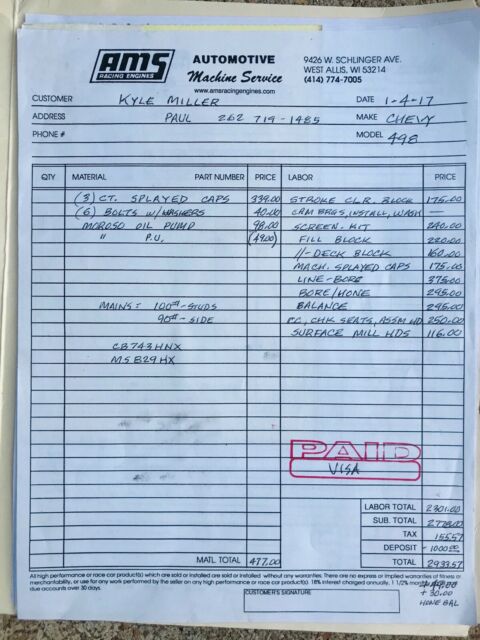 AMS
RACING ENGINES
AUTOMOTIVE
Machine Service
www.amsracingengines.com
9426 W. SCHLINGER AVE.
WEST ALLIS, WI 53214
(414) 774-7005
CUSTOMER KYLE MILLER DATE 1-4-17
ADDRESS PAUL 262 719-1485 MAKE CHEVY
PHONE # MODEL 498
QTY MATERIAL PART NUMBER PRICE LABOR PRICE
(3) CT. SPLAYED CAPS 339.00 STROKE CLR. BLOCK 175.00
(6) BOLTS W/WASHERS 40.00 CAM BRGS, INSTALL, WASH —
MOROSO OIL PUMP 98.00 SCREEN-KIT 240.00
" P.U. (49.00) FILL BLOCK 220.00
//-DECK BLOCK 160.00
MACH. SPLAYED CAPS 175.00
LINE-BORE 375.00
BORE/HONE 295.00
MAINS = 100#-STUDS BALANCE 295.00
90#-SIDE CHK SEATS, ASSM HD 250.00
SURFACE MILL HDS 116.00
CB743HNX
MS829HX
PAID
VISA
LABOR TOTAL 2301.00
SUB. TOTAL 2778.00
TAX 155.57
DEPOSIT -1000.00
MATL TOTAL 477.00 TOTAL 2933.57
All high performance or race car product(s) which are sold or installed are sold or installed without any warranties. There are no express or implied warranties of fitness or
merchantability, or use for any work performed by the seller on any high performance or race car product(s). 18% interest charged annually, 1 1/2% month
due accounts over 30 days.
CUSTOMER'S SIGNATURE
+49.00
+ 30.00
HONE BAL